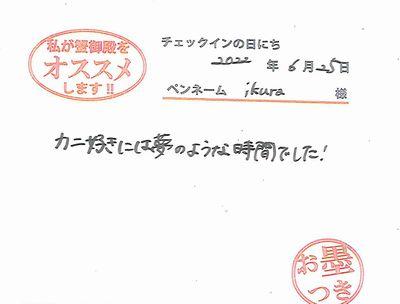 私が蟹御殿を
オススメ
します!!
チェックインの日にち
2022年6月25日
ペンネーム ikura 様
カニ好きには夢のような時間でした!
お墨
つき